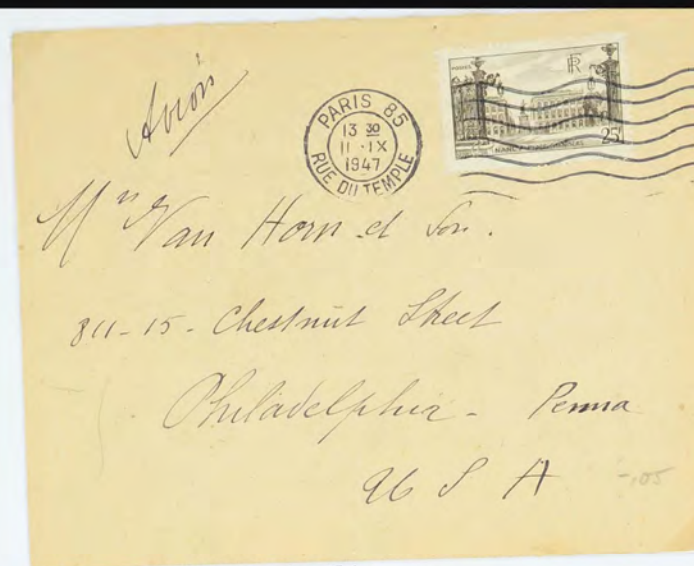 Avion
PARIS 85
13 30
11 · IX
1947
RUE DU TEMPLE
RF
25f
NANCY
Van Horn et Son.
811-15 - Chestnut Street
Philadelphia - Penna
U S A
-.05